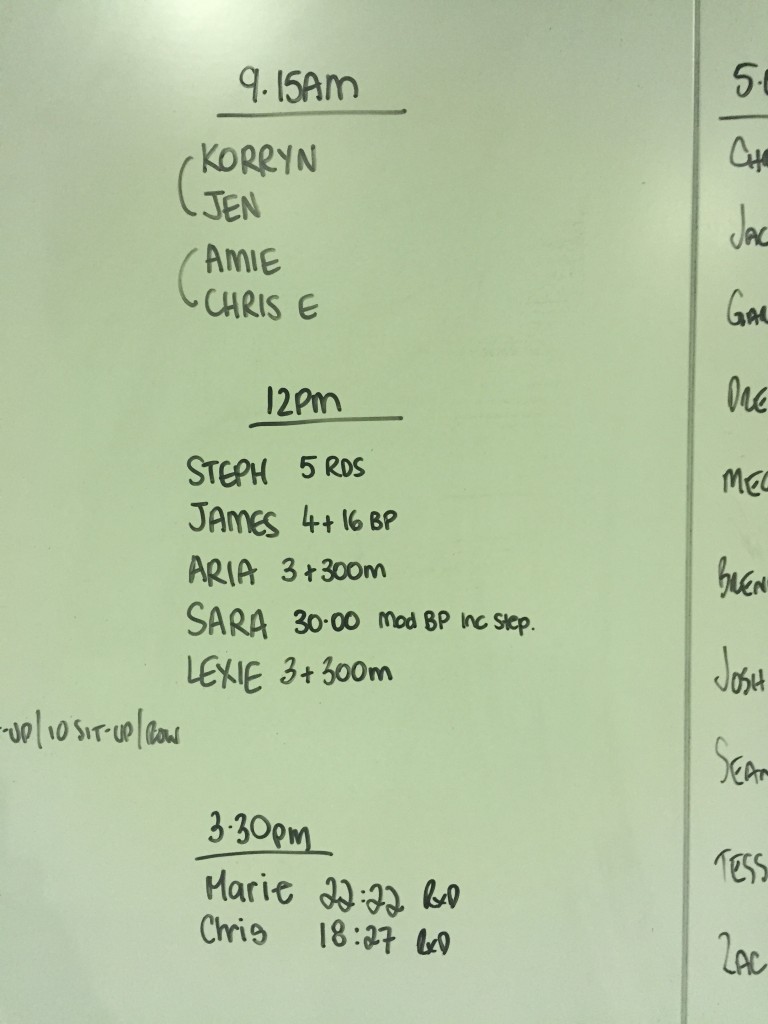 9.15AM
KORRYN
JEN
AMIE
CHRIS E
12pm
STEPH 5 RDS
JAMES 4+16 BP
ARIA 3+300m
SARA 30.00 Mod BP Inc Step.
LEXIE 3+300m
-UP/10 SIT-UP/ROW
3.30pm
Marie 22:22 RxD
Chris 18:27 RxD
5.
CH
JAC
GAR
DRE
MEG
BREN
JOSH
SEAN
TESS
ZAC